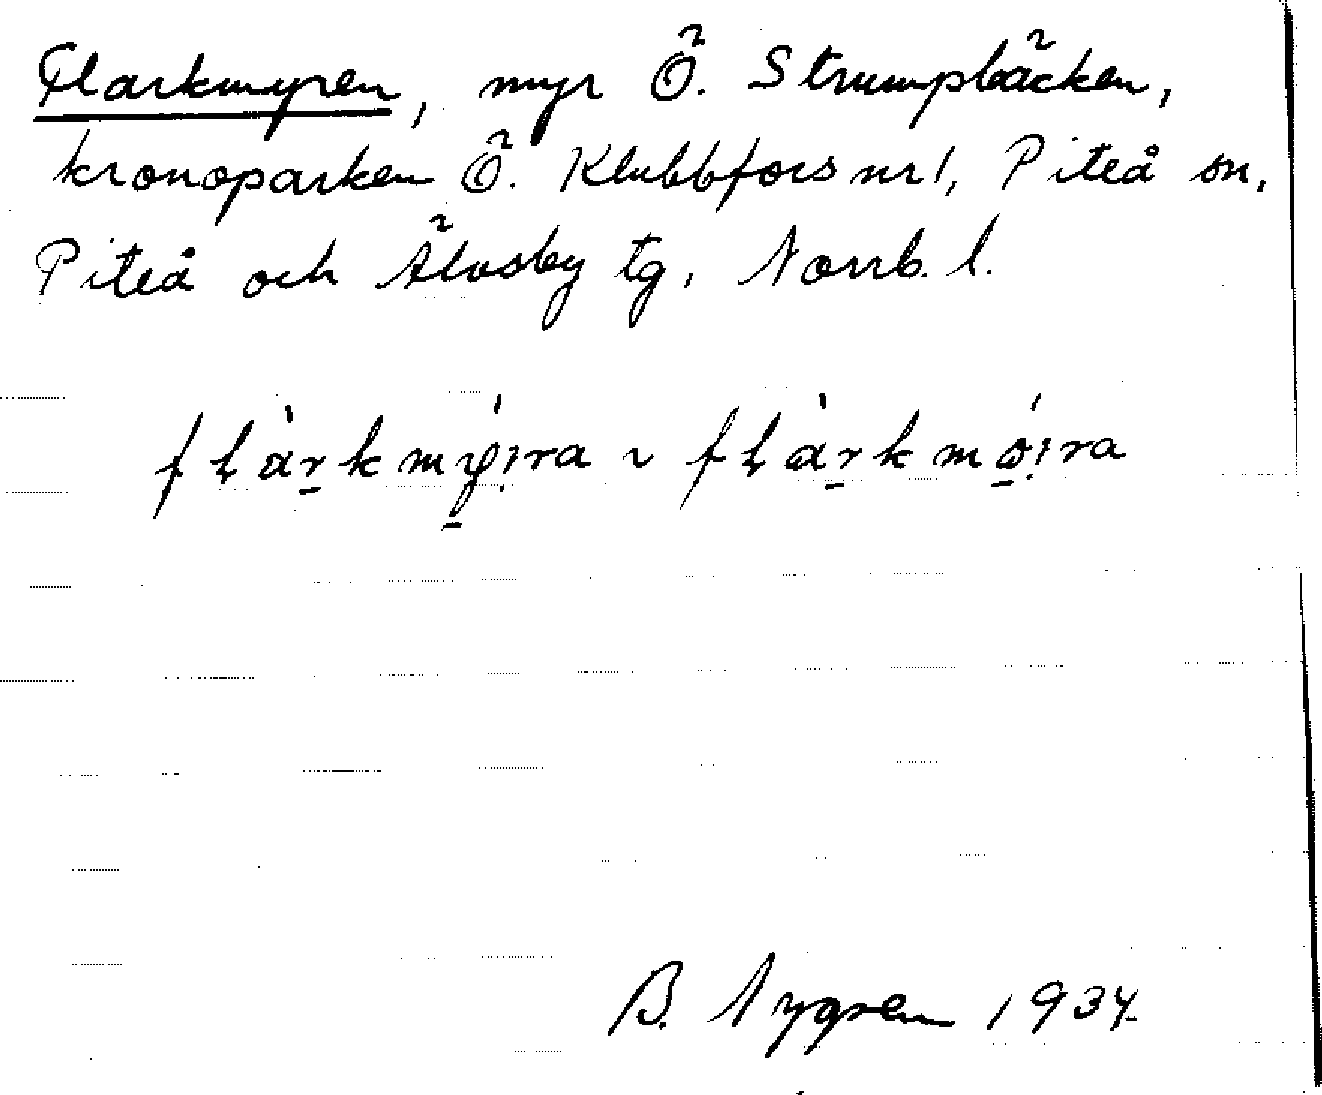 Flarkmyren, myr Ö. Strumpbäcken,
kronoparken Ö. Klubbfors nr 1, Piteå sn,
Piteå och Älvsby tg, Norrb. l.
B. Nygren 1934